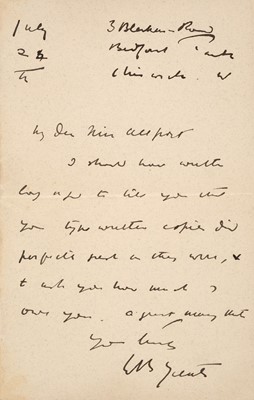 July 3 Blenheim Road
24 Bedford Park
th Chiswick. W
My dear Miss Allport
I should have written
long ago to tell you that
your type written copies did
perfectly well as they were, &
to ask you how much I
owe you. a great many
Yours truly
W B Yeats